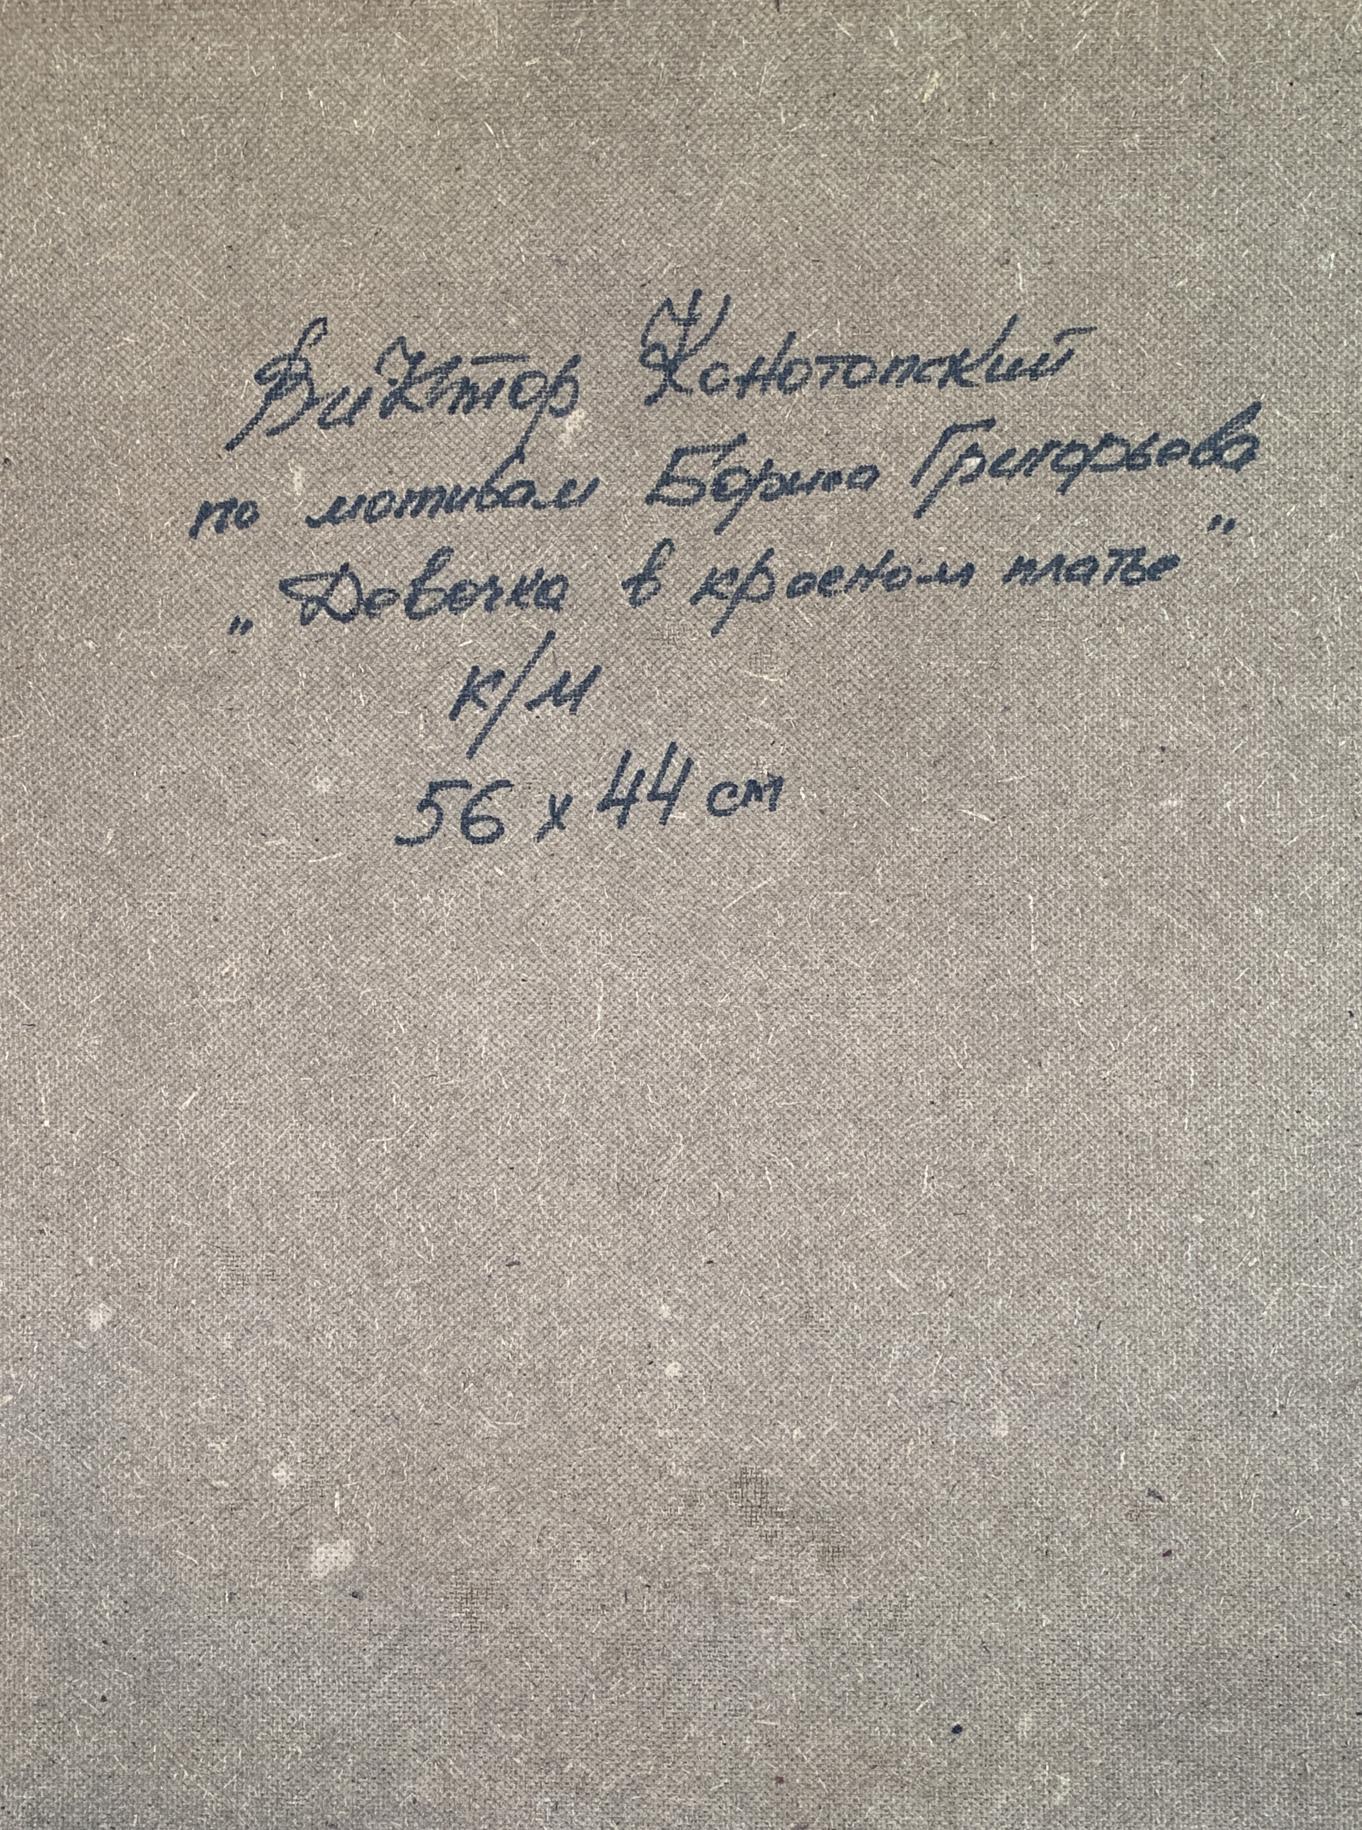 Виктор Конотопский
по мотивам Бориса Григорьева
„Девочка в красном платье"
к/м
56 х 44 см